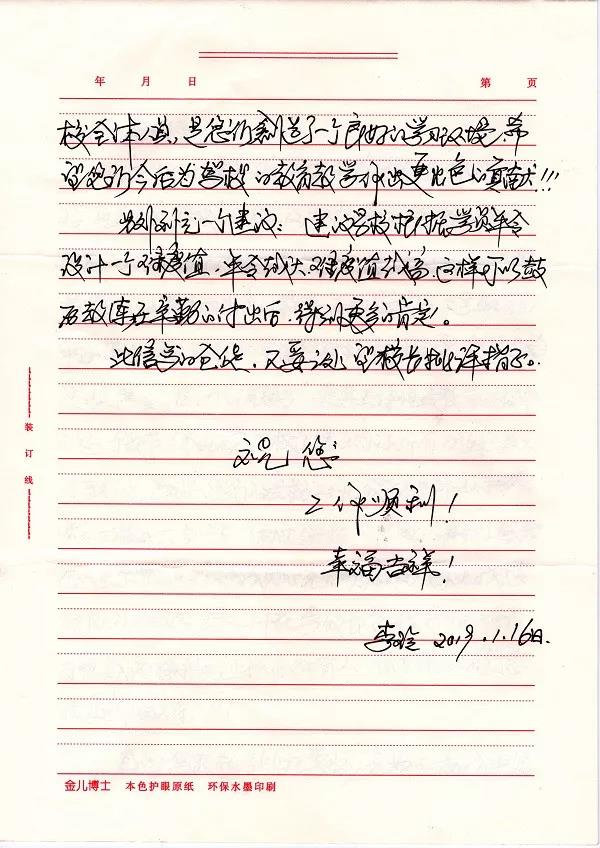 年 月 日 第 页
校全体人员，是您们创造了一个良好的学习环境，希
望您们今后为驾校的教育教学作出更出色的贡献!!!
另外补充一个建议：建议驾校根据学员年令
设计一个难度值，年令越大难度值越高，这样可以鼓
励教练在辛勤的付出后，得到更多的肯定。
此信写的仓促，不妥之处望校长批评指正。
祝您
工作顺利！
幸福吉祥！
李 2019.1.16日.
装订线
金儿博士 本色护眼原纸 环保水墨印刷